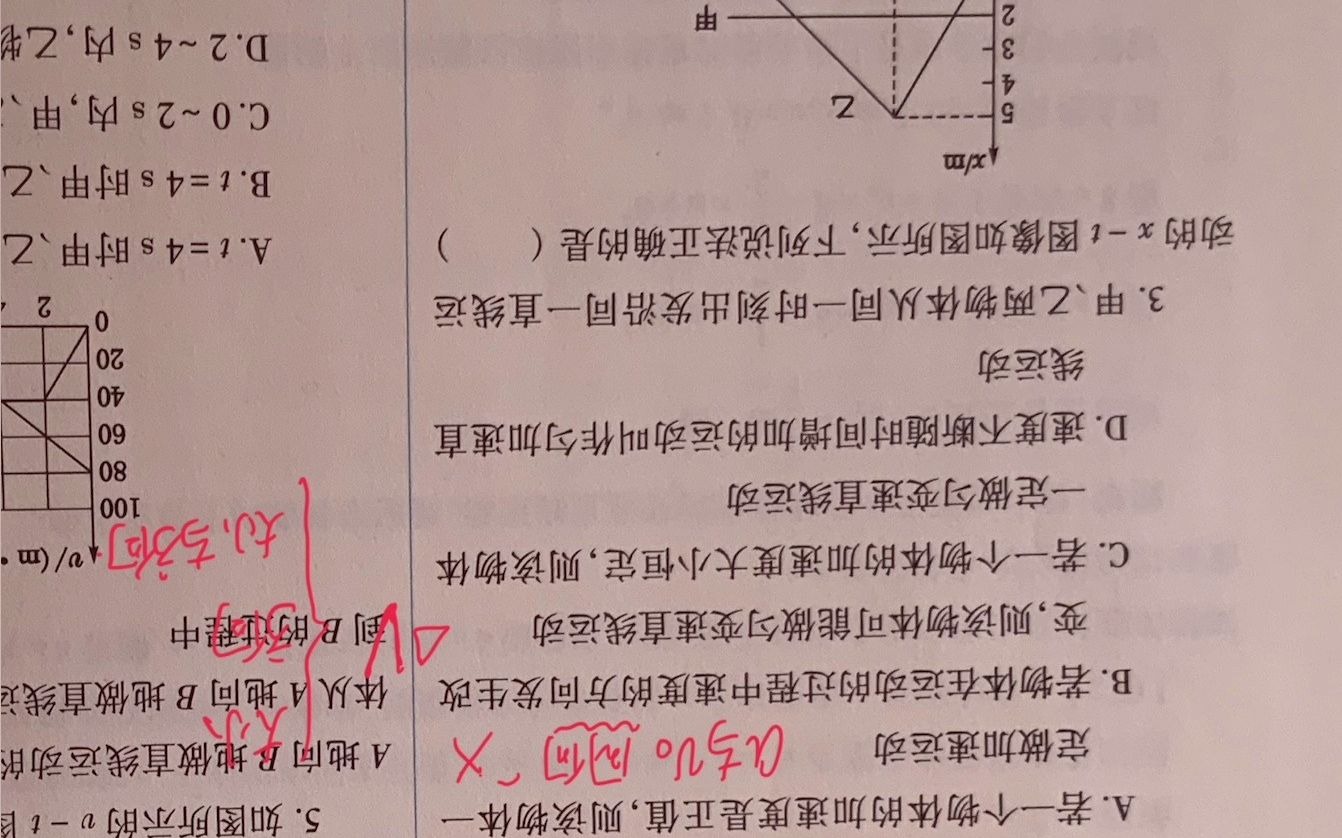 A. 若一个物体的加速度是正值,则该物体一
定做加速运动
a与v₀同向 ×
B. 若物体在运动的过程中速度的方向发生改
变,则该物体可能做匀变速直线运动
C. 若一个物体的加速度大小恒定,则该物体
一定做匀变速直线运动
D. 速度不断随时间增加的运动叫作匀加速直
线运动
3. 甲、乙两物体从同一时刻出发沿同一直线运
动的 x-t 图像如图所示,下列说法正确的是( )
x/m
5
4
3
2
乙
甲
5. 如图所示的 v-t
A 地向 B 地做直线运动的
体从 A 地向 B 地做直线运
到 B 的过程中
ΔV
大小
方向
大小与方向
v/(m·
100
80
60
40
20
0
2
A. t=4 s 时甲、乙
B. t=4 s 时甲、乙
C. 0~2 s 内,甲、
D. 2~4 s 内,乙